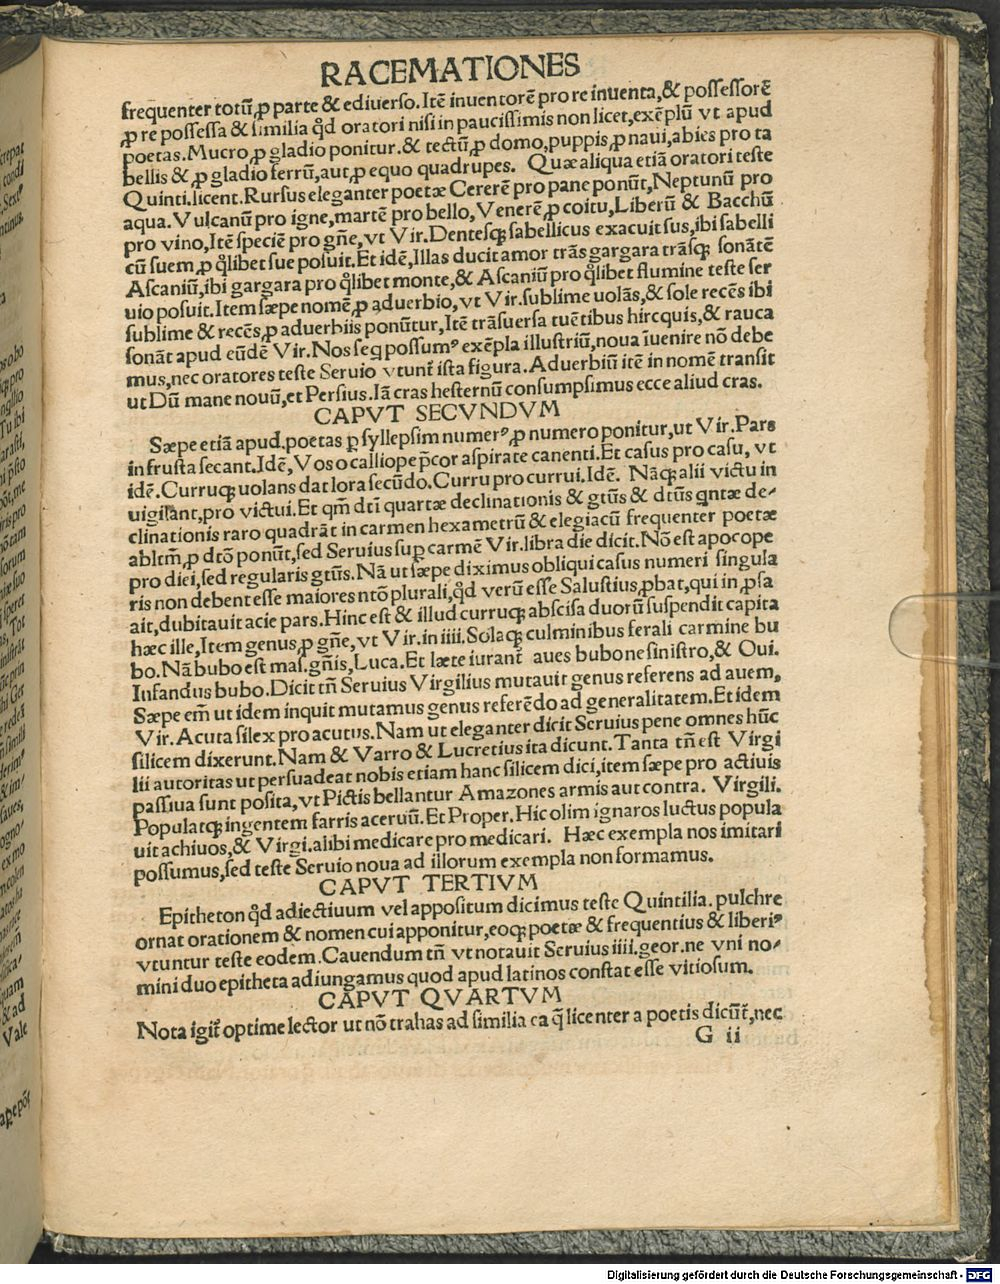 RACEMATIONES
frequenter totū,ꝓ parte & ediuerso. Itē inuentorē pro re inuenta,& possessorē
ꝓ re possessa & similia qd̉ oratori nisi in paucissimis non licet,exēplū vt apud
poetas. Mucro,ꝓ gladio ponitur. & tectū,ꝓ domo,puppis,ꝓ naui,abies pro ta
bellis & ꝓ gladio ferrū,aut,ꝓ equo quadrupes. Quæ aliqua etiā oratori teste
Quinti. licent. Rursus eleganter poetæ Cererē pro pane ponūt,Neptunū pro
aqua. Vulcanū pro igne,martē pro bello,Venerē,ꝓ coitu,Liberū & Bacchū
pro vino,Itē speciē pro gn̄e,vt Vir. Dentesqꝫ sabellicus exacuit sus,ibi sabelli
cū suem,ꝓ ql̉ibet sue posuit. Et idē,Illas ducit amor trās gargara trāsqꝫ sonātē
Ascaniū,ibi gargara pro ql̉ibet monte,& Ascaniū pro ql̉ibet flumine teste ser
uio posuit. Item sæpe nomē,ꝓ aduerbio,vt Vir. sublime uolās,& sole recēs ibi
sublime & recēs,ꝓ aduerbiis ponūtur,Itē trāsuersa tuētibus hircquis,& rauca
sonāt apud eūdē Vir. Nos seq possumꝰ exēpla illustriū,noua īuenire nō debe
mus,nec oratores teste Seruio vtunt᷑ ista figura. Aduerbiū itē in nomē transit
ut Dū mane nouū,et Persius. Iā cras hesternū consumpsimus ecce aliud cras.
CAPVT SECVNDVM
Sæpe etiā apud. poetas ꝑ syllepsim numerꝰ,ꝓ numero ponitur,ut Vir. Pars
in frusta secant. Idē,Vos o calliope p̄cor aspirate canenti. Et casus pro casu, vt
idē. Curruqꝫ uolans dat lora secūdo. Curru pro currui. Idē. Nāqꝫ alii victu in
uigilant,pro victui. Et qm̄ dti quartæ declinationis & gtūs & dtūs qntæ de⸗
clinationis raro quadrāt in carmen hexametrū & elegiacū frequenter poetæ
abltm̄,ꝓ dtō ponūt,sed Seruius sup carmē Vir. libra die dicit. Nō est apocope
pro diei,sed regularis gtūs. Nā ut sæpe diximus obliqui casus numeri singula
ris non debent esse maiores ntō plurali,qd̉ verū esse Salustius,ꝓbat,qui in,ꝓsa
ait,dubitauit acie pars. Hinc est & illud curruqꝫ abscisa duorū suspendit capita
hæc ille,Item genus,ꝓ gn̄e,vt Vir. in iiii. Solaqꝫ culminibus ferali carmine bu
bo. Nā bubo est mas. gn̄is,Luca. Et læte iurant᷑ aues bubone sinistro,& Oui.
Infandus bubo. Dicit tn̄ Seruius Virgilius mutauit genus referens ad auem,
Sæpe em̄ ut idem inquit mutamus genus referēdo ad generalitatem. Et idem
Vir. Acuta silex pro acutus. Nam ut eleganter dicit Seruius pene omnes hūc
silicem dixerunt. Nam & Varro & Lucretius ita dicunt. Tanta tn̄ est Virgi
lii autoritas ut persuadeat nobis etiam hanc silicem dici,item sæpe pro actiuis
passiua sunt posita,vt Pictis bellantur Amazones armis aut contra. Virgili.
Populatqꝫ ingentem farris aceruū. Et Proper. Hic olim ignaros luctus popula
uit achiuos,& Virgi. alibi medicare pro medicari. Hæc exempla nos imitari
possumus,sed teste Seruio noua ad illorum exempla non formamus.
CAPVT TERTIVM
Epitheton qd̉ adiectiuum vel appositum dicimus teste Quintilia. pulchre
ornat orationem & nomen cui apponitur,eoqꝫ poetæ & frequentius & liberiꝰ
vtuntur teste eodem. Cauendum tn̄ vt notauit Seruius iiii. geor. ne vni no⸗
mini duo epitheta adiungamus quod apud latinos constat esse vitiosum.
CAPVT QVARTVM
Nota igit᷑ optime lector ut nō trahas ad similia ea q̄ licenter a poetis dicūt᷑,nec
G ii
Digitalisierung gefördert durch die Deutsche Forschungsgemeinschaft - DFG